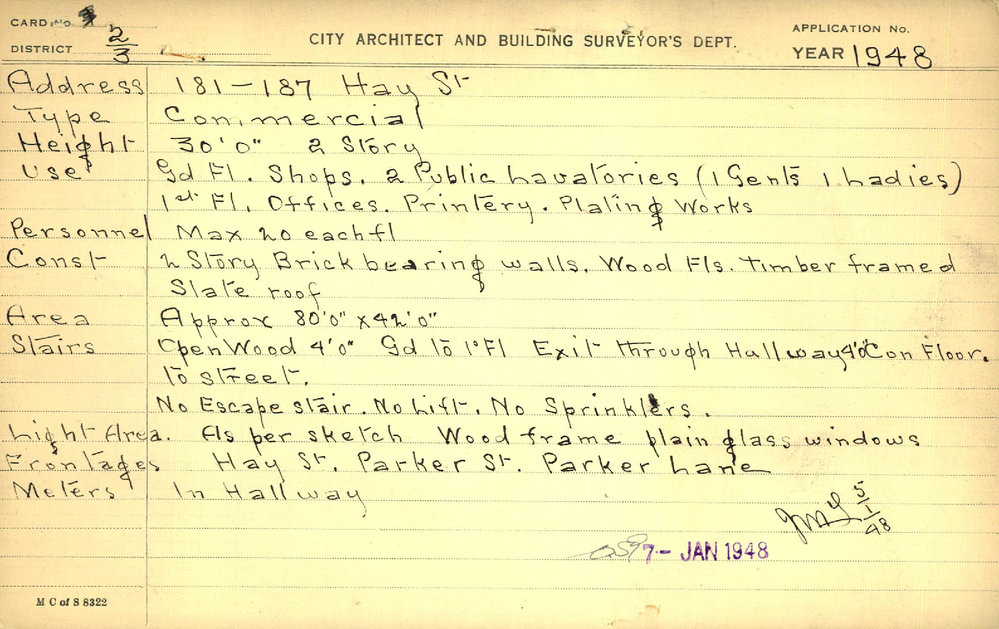 CARD No
DISTRICT 2/3
CITY ARCHITECT AND BUILDING SURVEYOR'S DEPT.
APPLICATION No.
YEAR 1948
Address 181-187 Hay St
Type Commercial
Height 30'0" 2 Story
Use Gd Fl. Shops. 2 Public Lavatories (1 Gents 1 Ladies)
1st Fl. Offices. Printery. Plating Works
Personnel Max 20 each fl
Const 2 Story Brick bearing walls. Wood Fls. Timber framed
Slate roof
Area Approx 80'0" x 42'0"
Stairs Open Wood 4'0" Gd to 1st Fl Exit through Hallway 4'0" Con Floor.
to street.
No Escape stair. No Lift. No Sprinklers.
Light Area. As per sketch Wood frame plain glass windows
Frontages Hay St. Parker St. Parker Lane
Meters In Hallway
5/1/48
7 - JAN 1948
M C of S 8322